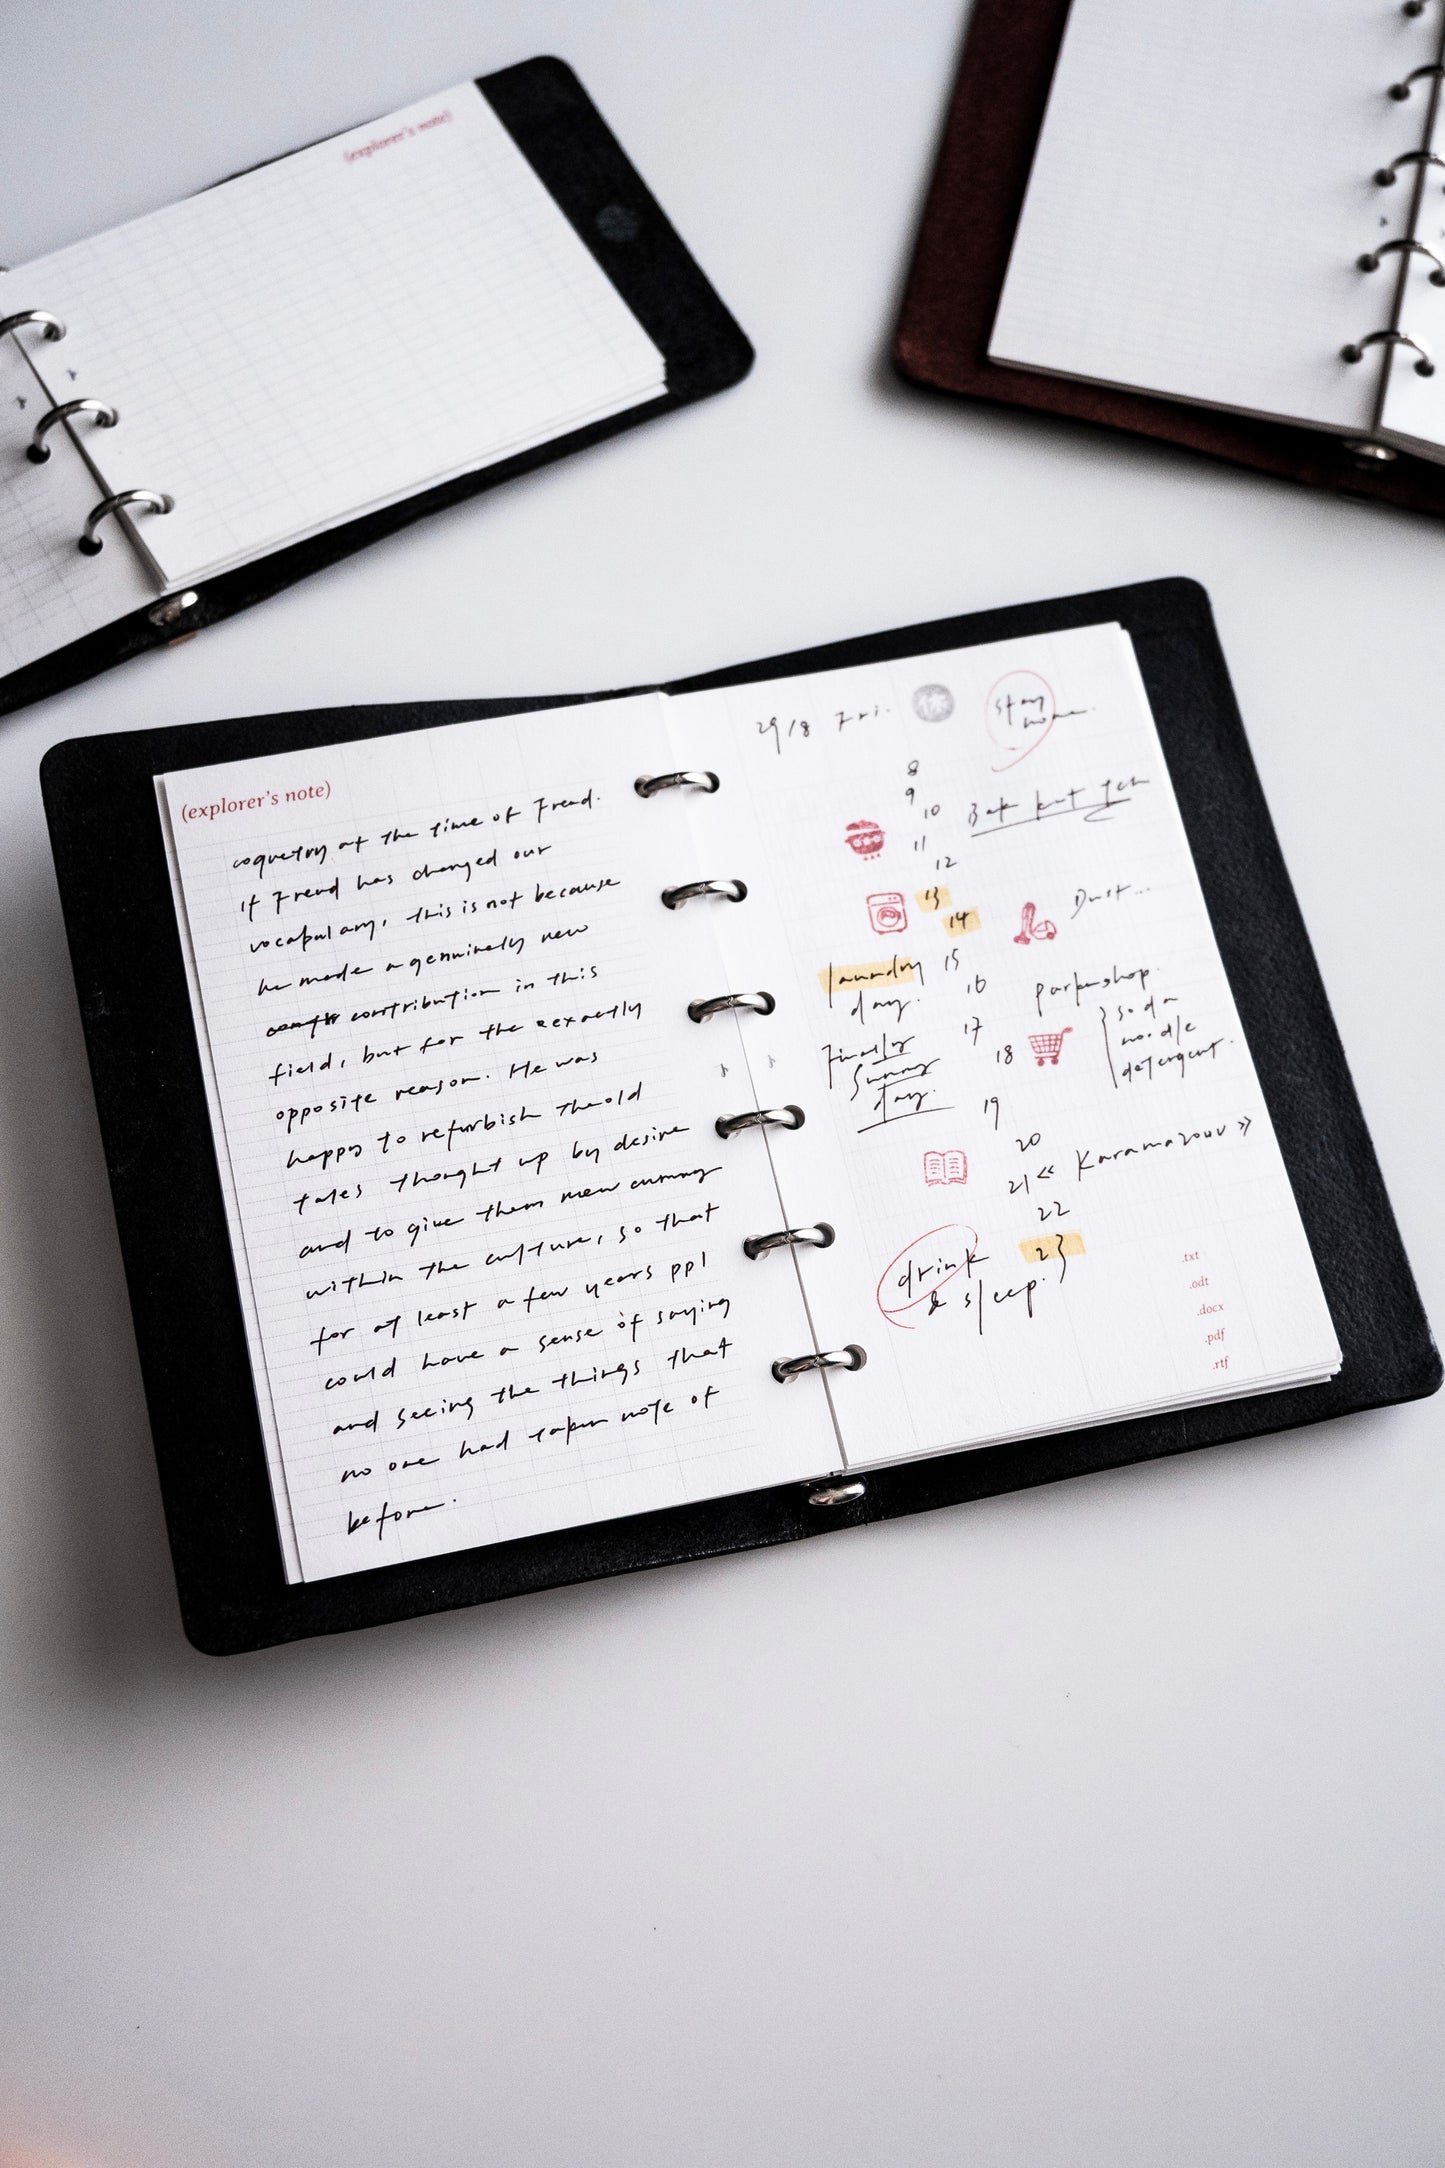 (explorer's note)
(explorer's note)
coquetry at the time of Freud.
if Freud has changed our
vocabulary, this is not because
he made a genuinely new
contribution in this
field, but for the exactly
opposite reason. He was
happy to refurbish the old
tales thought up by desire
and to give them new
within the culture, so that
for at least a few years ppl
could have a sense of saying
and seeing the things that
no one had taken note of
before.
29/8 Fri.
stay
home.
8
9
10
11
12
13
14
Dust...
laundry
day.
15
16
parknshop.
soda
noodle
detergent.
17
18
Finally
Sunny
day.
19
20
21 << Karamazouv >>
22
23
drink
& sleep.
.txt
.odt
.docx
.pdf
.rtf